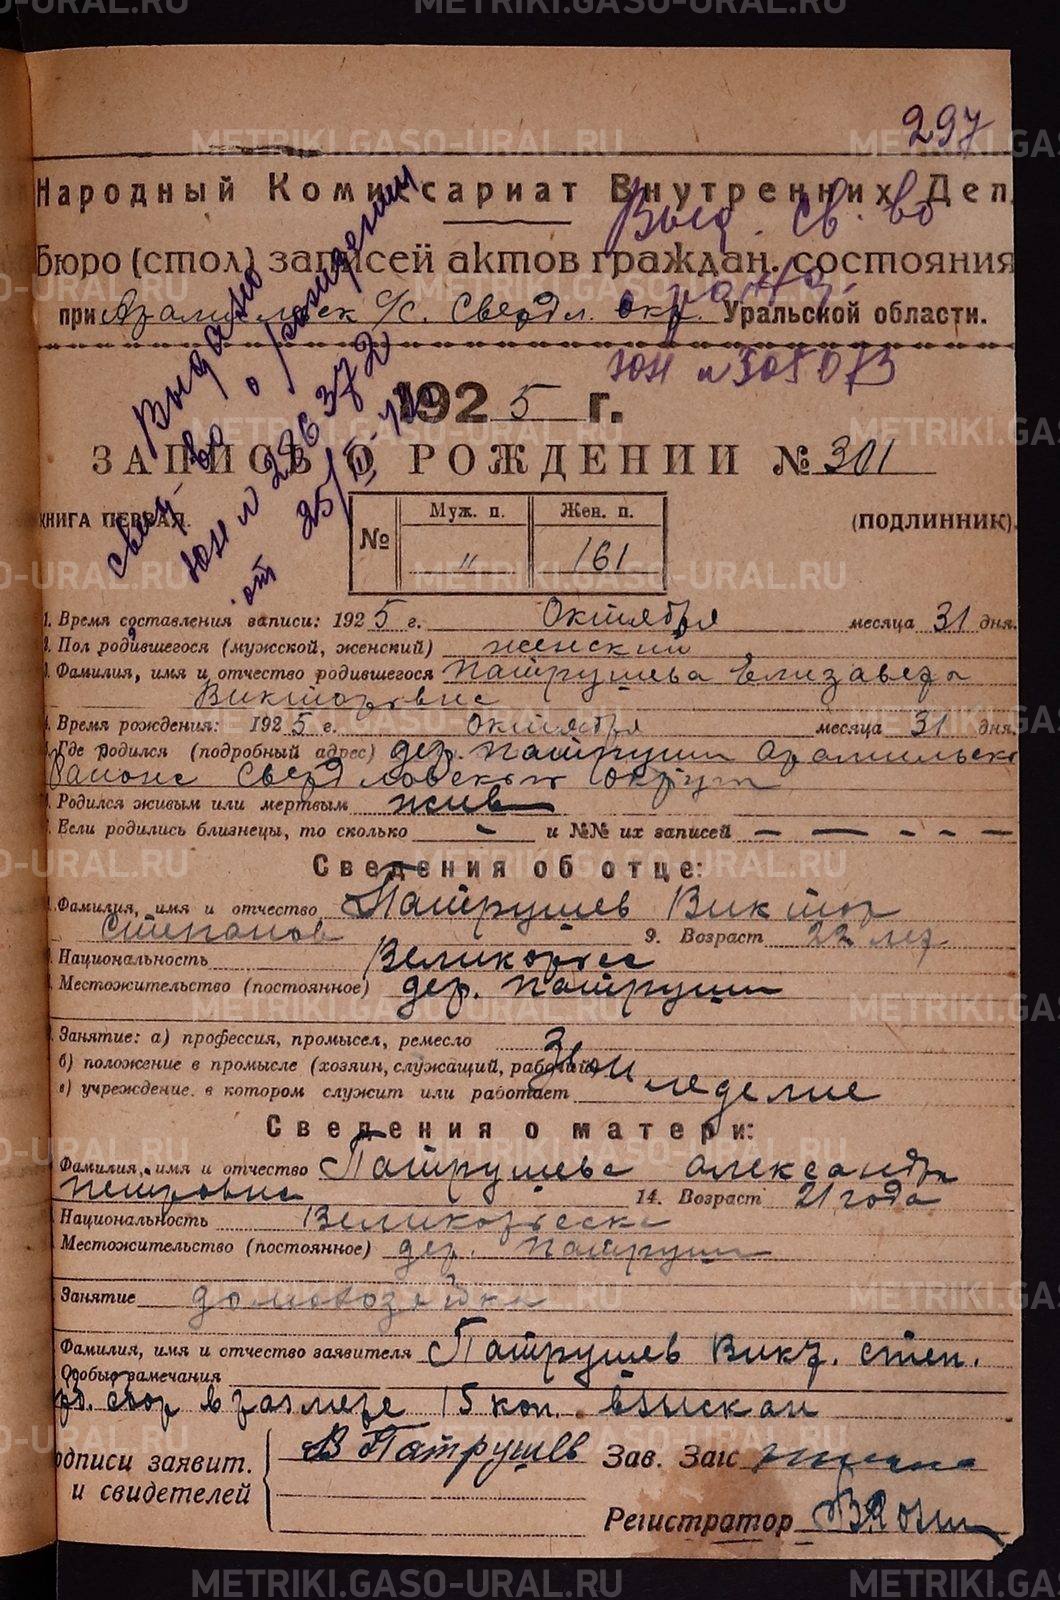 297
Народный Комиссариат Внутренних Дел
Бюро (стол) записей актов граждан. состояния
при Арамильск с/с. Свердл. окр. Уральской области.
Выд. св. во
ЮН № 305073
Выдано
свид-во о рождении
ЮН № 2263720
от 25/II-
1925 г.
ЗАПИСЬ О РОЖДЕНИИ № 301
КНИГА ПЕРВАЯ. (ПОДЛИННИК).
№ Муж. п. Жен. п.
" 161
1. Время составления записи: 1925 г. Октября месяца 31 дня.
2. Пол родившегося (мужской, женский) женский
Фамилия, имя и отчество родившегося Патрушева Елизавета
Викторовна
Время рождения: 1925 г. Октября месяца 31 дня.
Где родился (подробный адрес) дер. Патруши Арамильско
Районе Свердловском округ
Родился живым или мертвым жив
Если родились близнецы, то сколько - и №№ их записей — — - - —
Сведения об отце:
Фамилия, имя и отчество Патрушев Виктор
Степанов 9. Возраст 22 лет
Национальность Великорусс
Местожительство (постоянное) дер. Патруши
Занятие: а) профессия, промысел, ремесло
б) положение в промысле (хозяин, служащий, рабочий)
в) учреждение. в котором служит или работает
Земледелие
Сведения о матери:
Фамилия, имя и отчество Патрушева Александра
Петровна 14. Возраст 21 года
Национальность Великорусска
Местожительство (постоянное) дер. Патруши
Занятие домохозяйка
Фамилия, имя и отчество заявителя Патрушев Викт. Степ.
Особые замечания
сбор в размере 15 коп. взыскан
одписи заявит. В Патрушев Зав. Загс
и свидетелей
Регистратор
METRIKI.GASO-URAL.RU